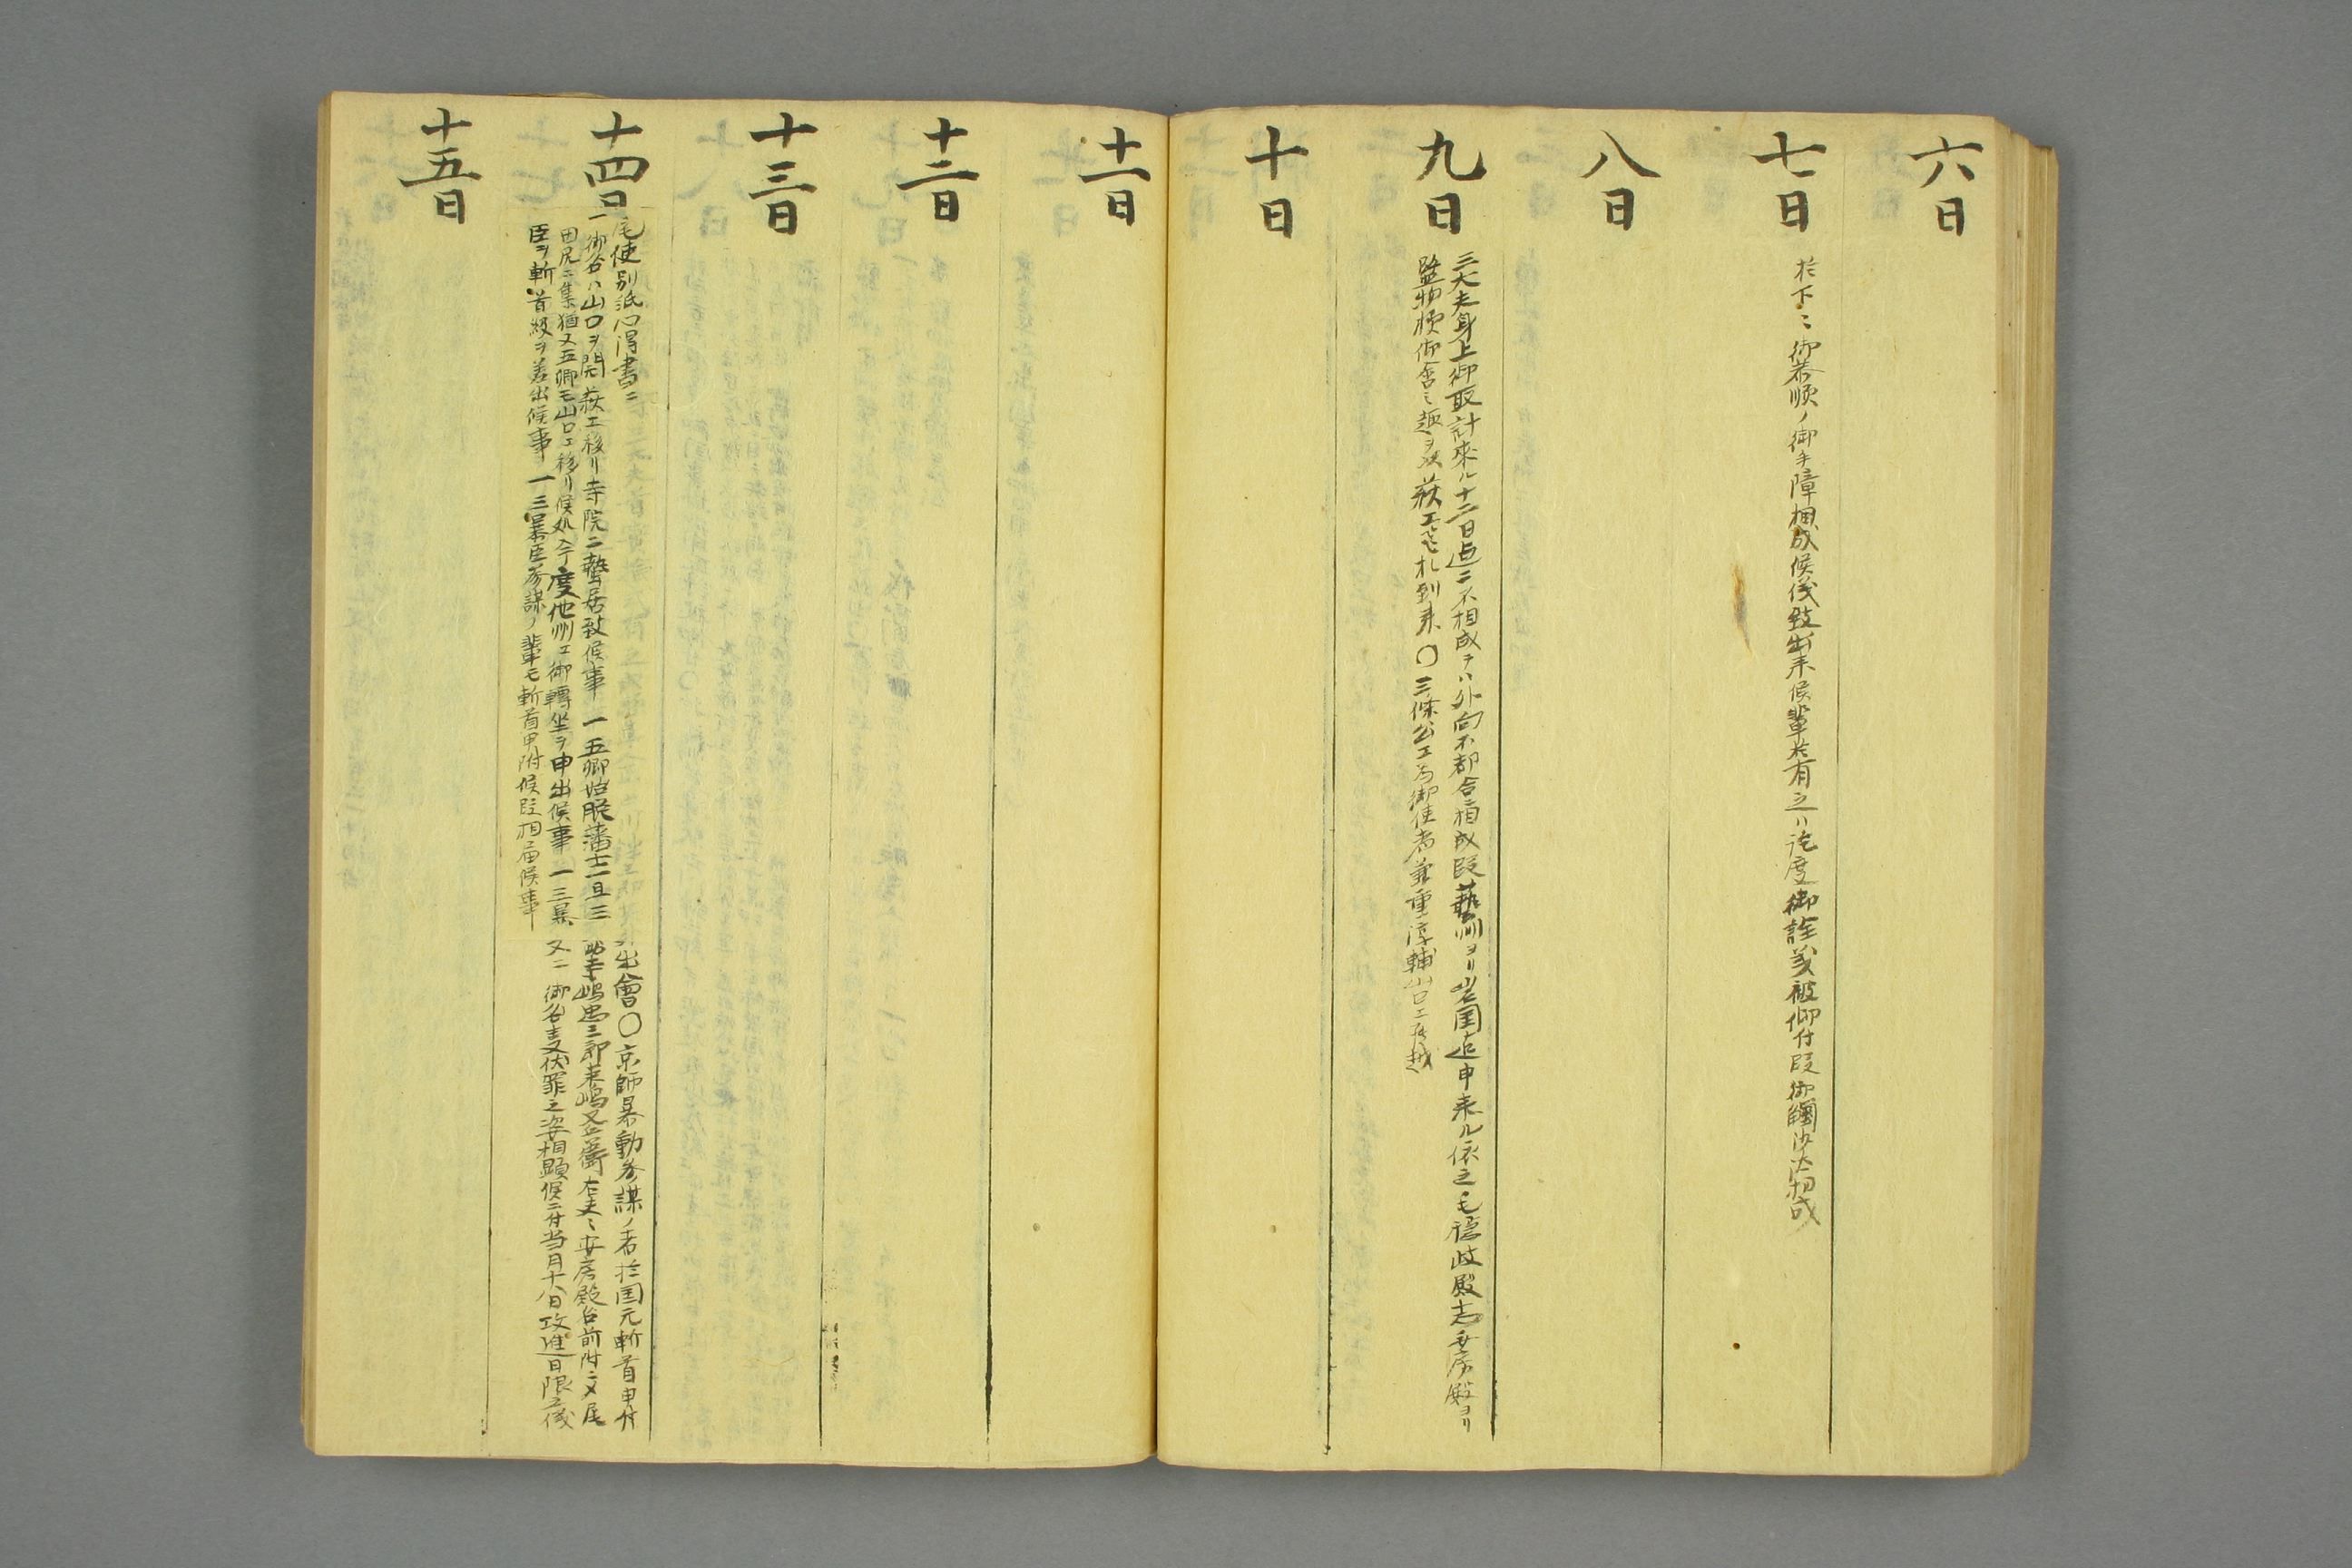 六日
七日
於下ニ御恭順ノ御手障相成候儀致出来候輩於有之ハ詮度御詮義被仰付段御觸沙汰相成
八日
九日
三大夫身上御取計来ル十二日迠ニ不相成テハ外向不都合相成段藝州ヨリ岩国迠申来ル依之毛隠岐殿志安房殿ヨリ
監物様御含之趣ヲ以萩エ札到来〇三條公エ為御使者兼重淳輔山口エ罷越
十日
十一日
十二日
十三日
十四日
尾使別紙心得書ニ
一御父子ハ山口ヲ開萩エ移リ寺院ニ蟄居致候事 一五卿始脱藩士一旦三
田尻ニ集猶又五卿モ山口エ移リ候処今度他州エ御轉坐ヲ申出候事 一三暴
臣ヲ斬首級ヲ差出候事 一三暴臣参謀ノ輩モ斬首申附候段相届候事
出會〇京師暴動参謀ノ者於国元斬首申付
寺嶋忠三郎来嶋又兵衛右夫々安房殿台前附ニ又尾
又ニ御父子伏罪之姿相顕候ニ付当月十八日攻進日限之儀
十五日